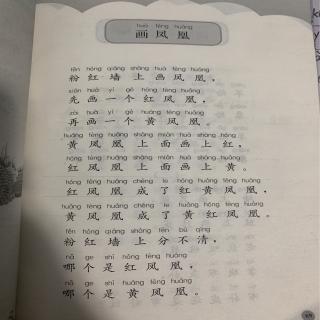 huà fèng huáng
画凤凰
fěn hóng qiáng shàng huà fèng huáng
粉红墙上画凤凰，
xiān huà yí gè hóng fèng huáng
先画一个红凤凰，
zài huà yí gè huáng fèng huáng
再画一个黄凤凰。
huáng fèng huáng shàng miàn huà shàng hóng
黄凤凰上面画上红，
hóng fèng huáng shàng miàn huà shàng huáng
红凤凰上面画上黄。
hóng fèng huáng chéng le hóng huáng fèng huáng
红凤凰成了红黄凤凰，
huáng fèng huáng chéng le huáng hóng fèng huáng
黄凤凰成了黄红凤凰。
fěn hóng qiáng shàng fēn bù qīng
粉红墙上分不清，
nǎ ge shì hóng fèng huáng
哪个是红凤凰，
nǎ ge shì huáng fèng huáng
哪个是黄凤凰。